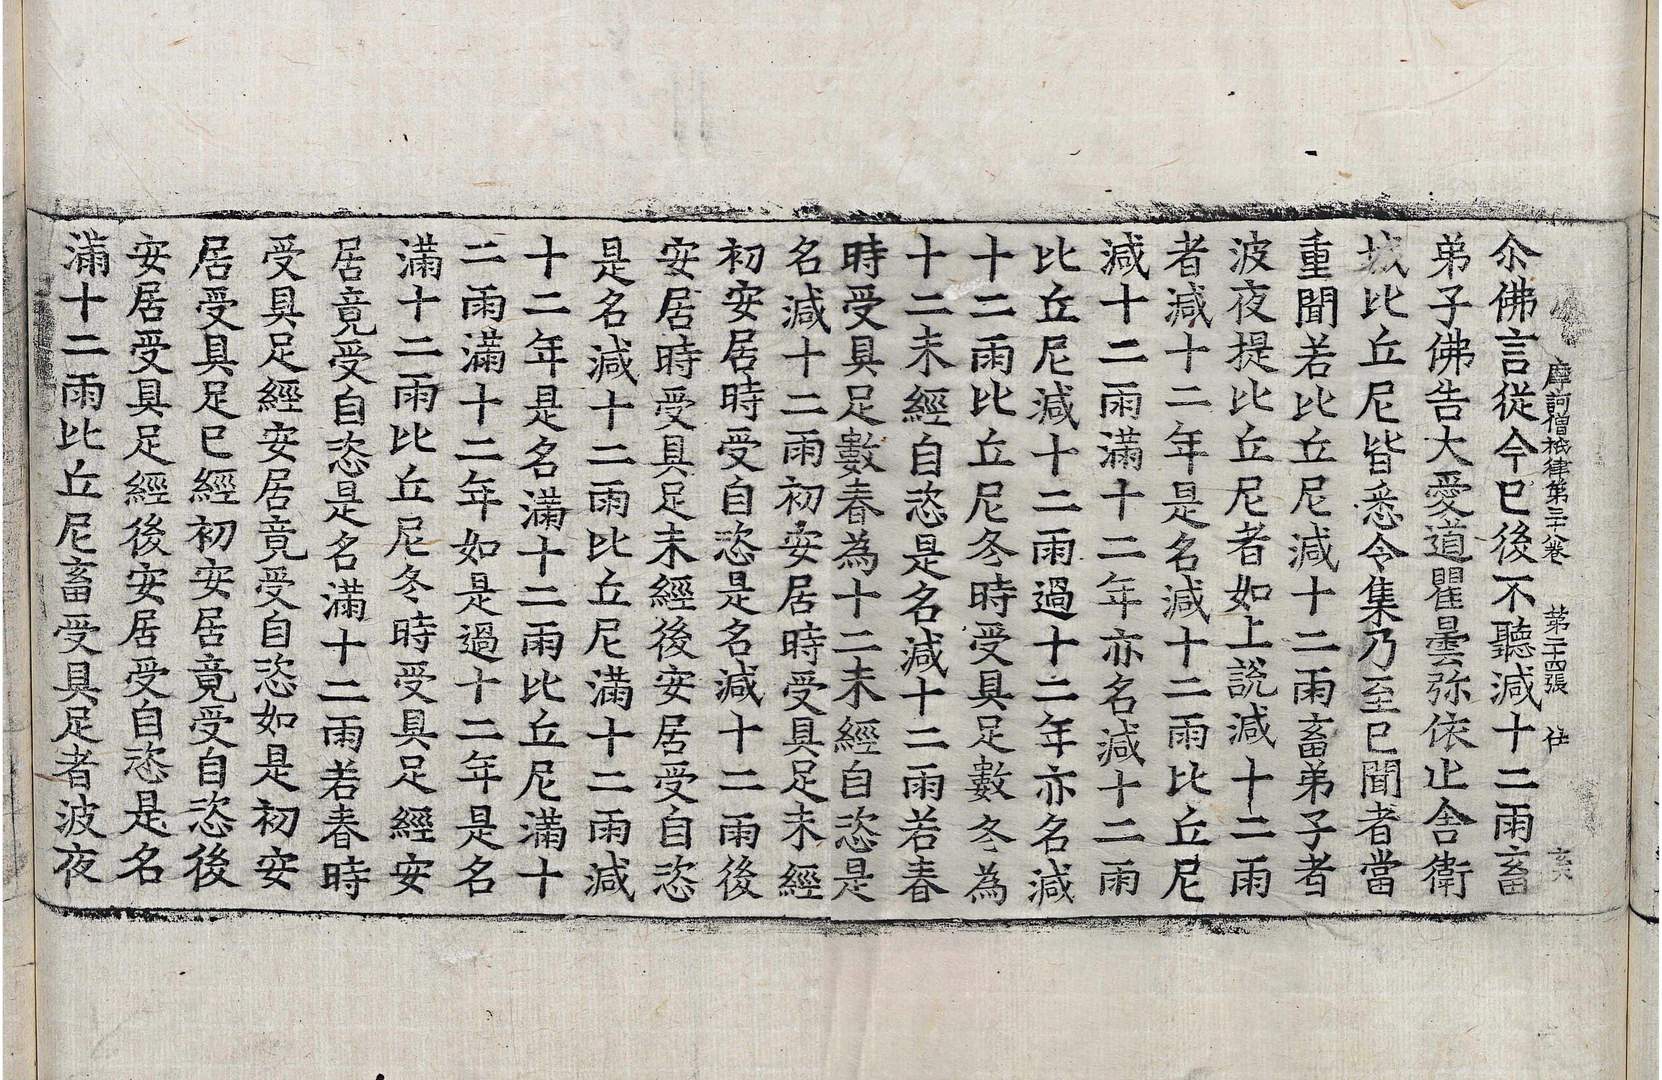 摩訶僧祇律第三十八卷　第二十四張　仕
尒佛言従今已後不聽減十二雨畜
弟子佛告大愛道瞿曇弥依止舍衛
城比丘尼皆悉令集乃至已聞者當
重聞若比丘尼減十二雨畜弟子者
波夜提比丘尼者如上說減十二雨
者減十二年是名減十二雨比丘尼
減十二雨滿十二年亦名減十二雨
比丘尼減十二雨過十二年亦名減
十二雨比丘尼冬時受具足數冬為
十二未經自恣是名減十二雨若春
時受具足數春為十二未經自恣是
名減十二雨初安居時受具足未經
初安居時受自恣是名減十二雨後
安居時受具足未經後安居受自恣
是名減十二雨比丘尼滿十二雨減
十二年是名滿十二雨比丘尼滿十
二雨滿十二年如是過十二年是名
滿十二雨比丘尼冬時受具足經安
居竟受自恣是名滿十二雨若春時
受具足經安居竟受自恣如是初安
居受具足已經初安居竟受自恣後
安居受具足經後安居受自恣是名
滿十二雨比丘尼畜受具足者波夜